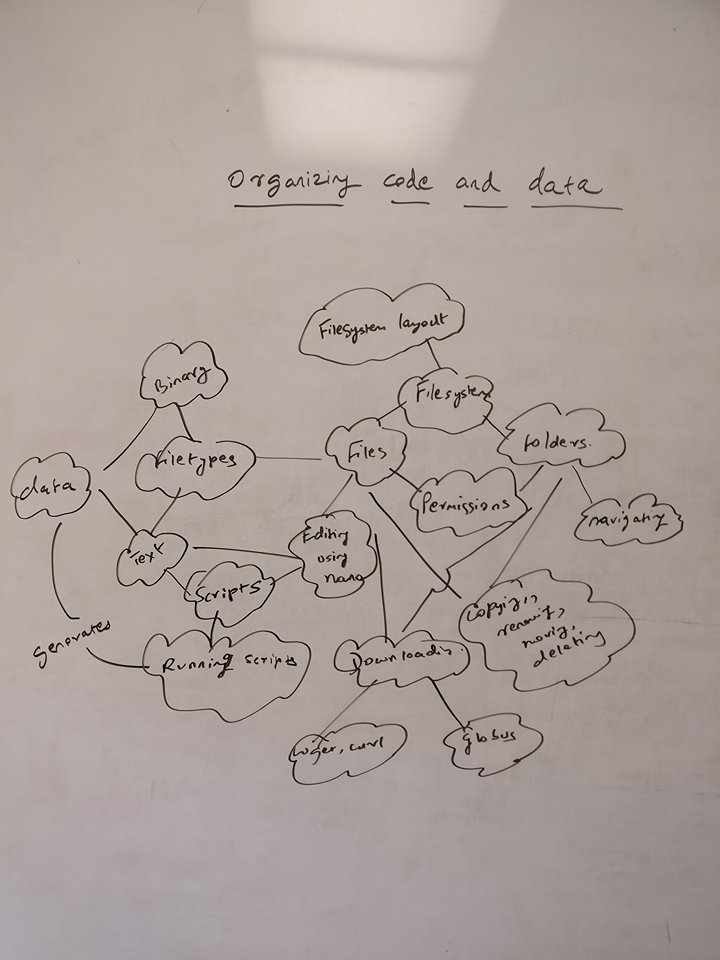 Organizing code and data
Filesystem layout
Binary
Filesystem
Filetypes
Files
folders.
data
Permissions
navigating
Text
Editing
using
nano
Scripts
Copying,
renaming,
moving,
deleting
generates
Running scripts
Downloading
wget, curl
globus